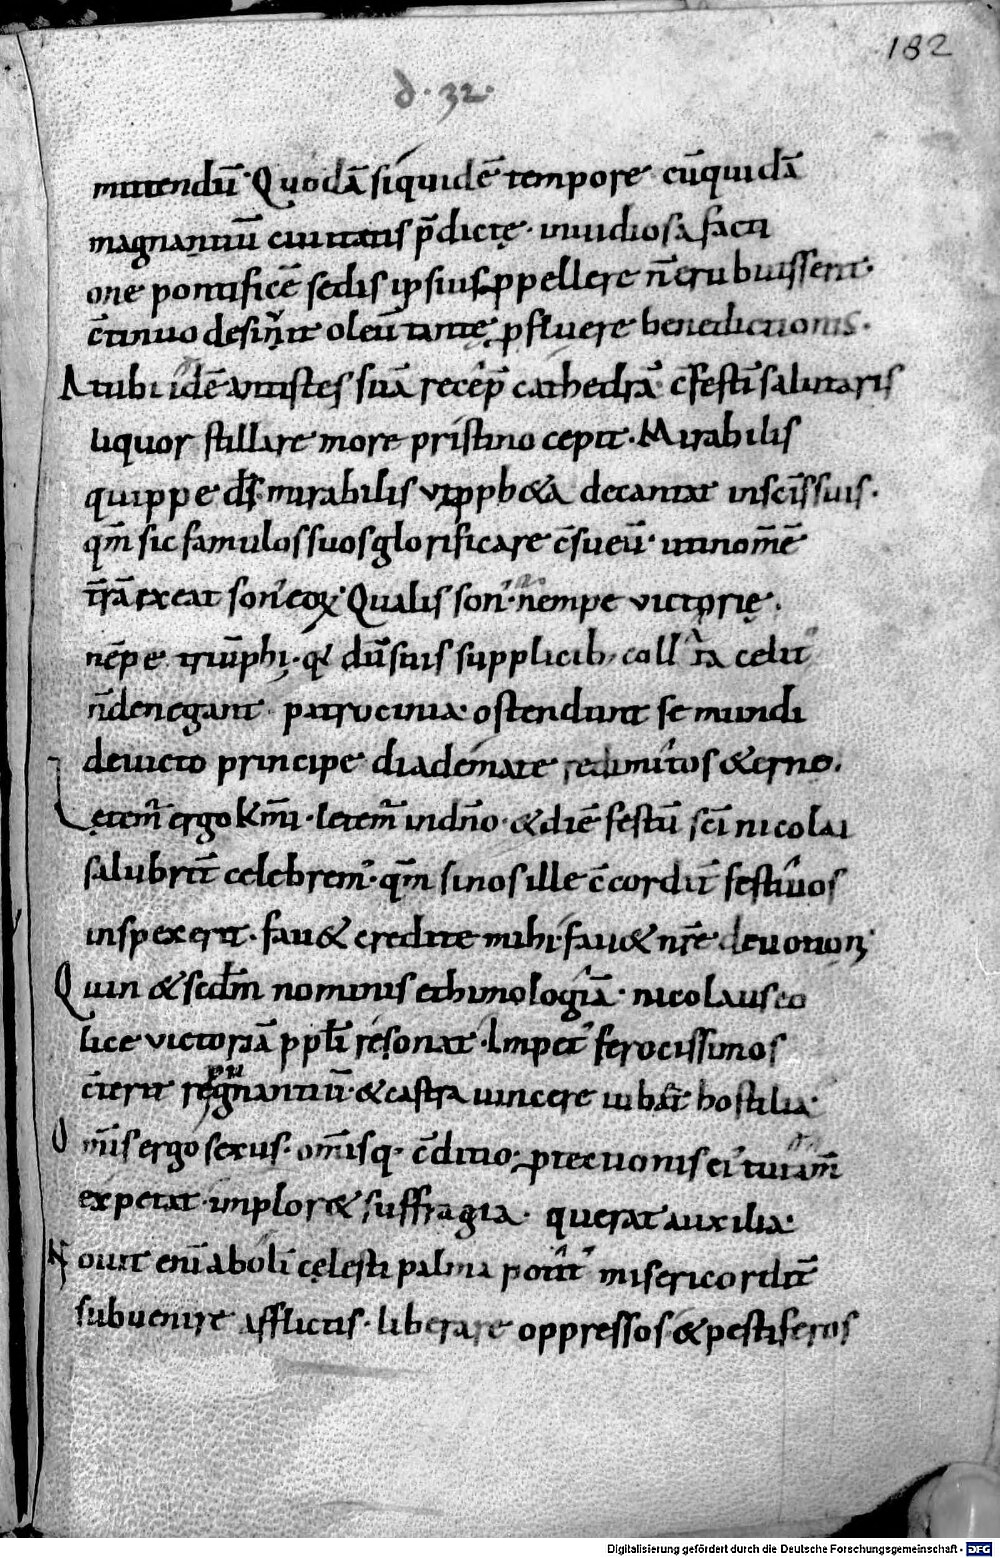 182
d. 32.
mittendū. Quodā siquidē tempore cū quidā
magnantiū ciuitatis p̄dictę. inuidiosa facti
one pontificē sedis ipsius ꝓpellere n̄ erubuissent.
c̄tinuo desin̄it oleū tantę ꝓfluere benedictionis.
At ubi idē antistes suā recep̄ cathedrā. c̄festī salutaris
liquor stillare more pristino cepit. Mirabilis
quippe ds̄. mirabilis ut ꝓph&a decantat in scīs suis.
qm̄ sic famulos suos glorificare c̄sueuī. ut in om̄ē
tr̄ā exeat son eoꝝ. Qualis son. nempe victorię.
nēpe triūphi. qd dū suis supplicib; coll ra celit
n̄ denegant patrocinia ostendunt se mundi
deuicto principe diademate redimitos &erno.
Letem̄ ergo km̄i. letem̄ in dn̄o. & diē festū sc̄i nicolai
salubrit̄ celebrem. qm̄ si nos ille c̄cordit̄ festiuos
inspexerit. fau& credite mihi. fau& nr̄e deuotioni
Quin & scdm̄ nominis ethimologiā. nicolaus eo
lice victoriā ppl̄i resonat. Impet ferocissimos
c̄terit regnantiū. & castra uincere iubet hostilia.
Om̄is ergo sexus. om̄isq. c̄ditio. ꝓtectionis ei tutam̄
expetat. implor& suffragia. querat auxilia.
Nouit enī aboli celesti palma potit misericordit̄
subuenire afflictis. liberare oppressos & pestiferos
Digitalisierung gefördert durch die Deutsche Forschungsgemeinschaft - DFG